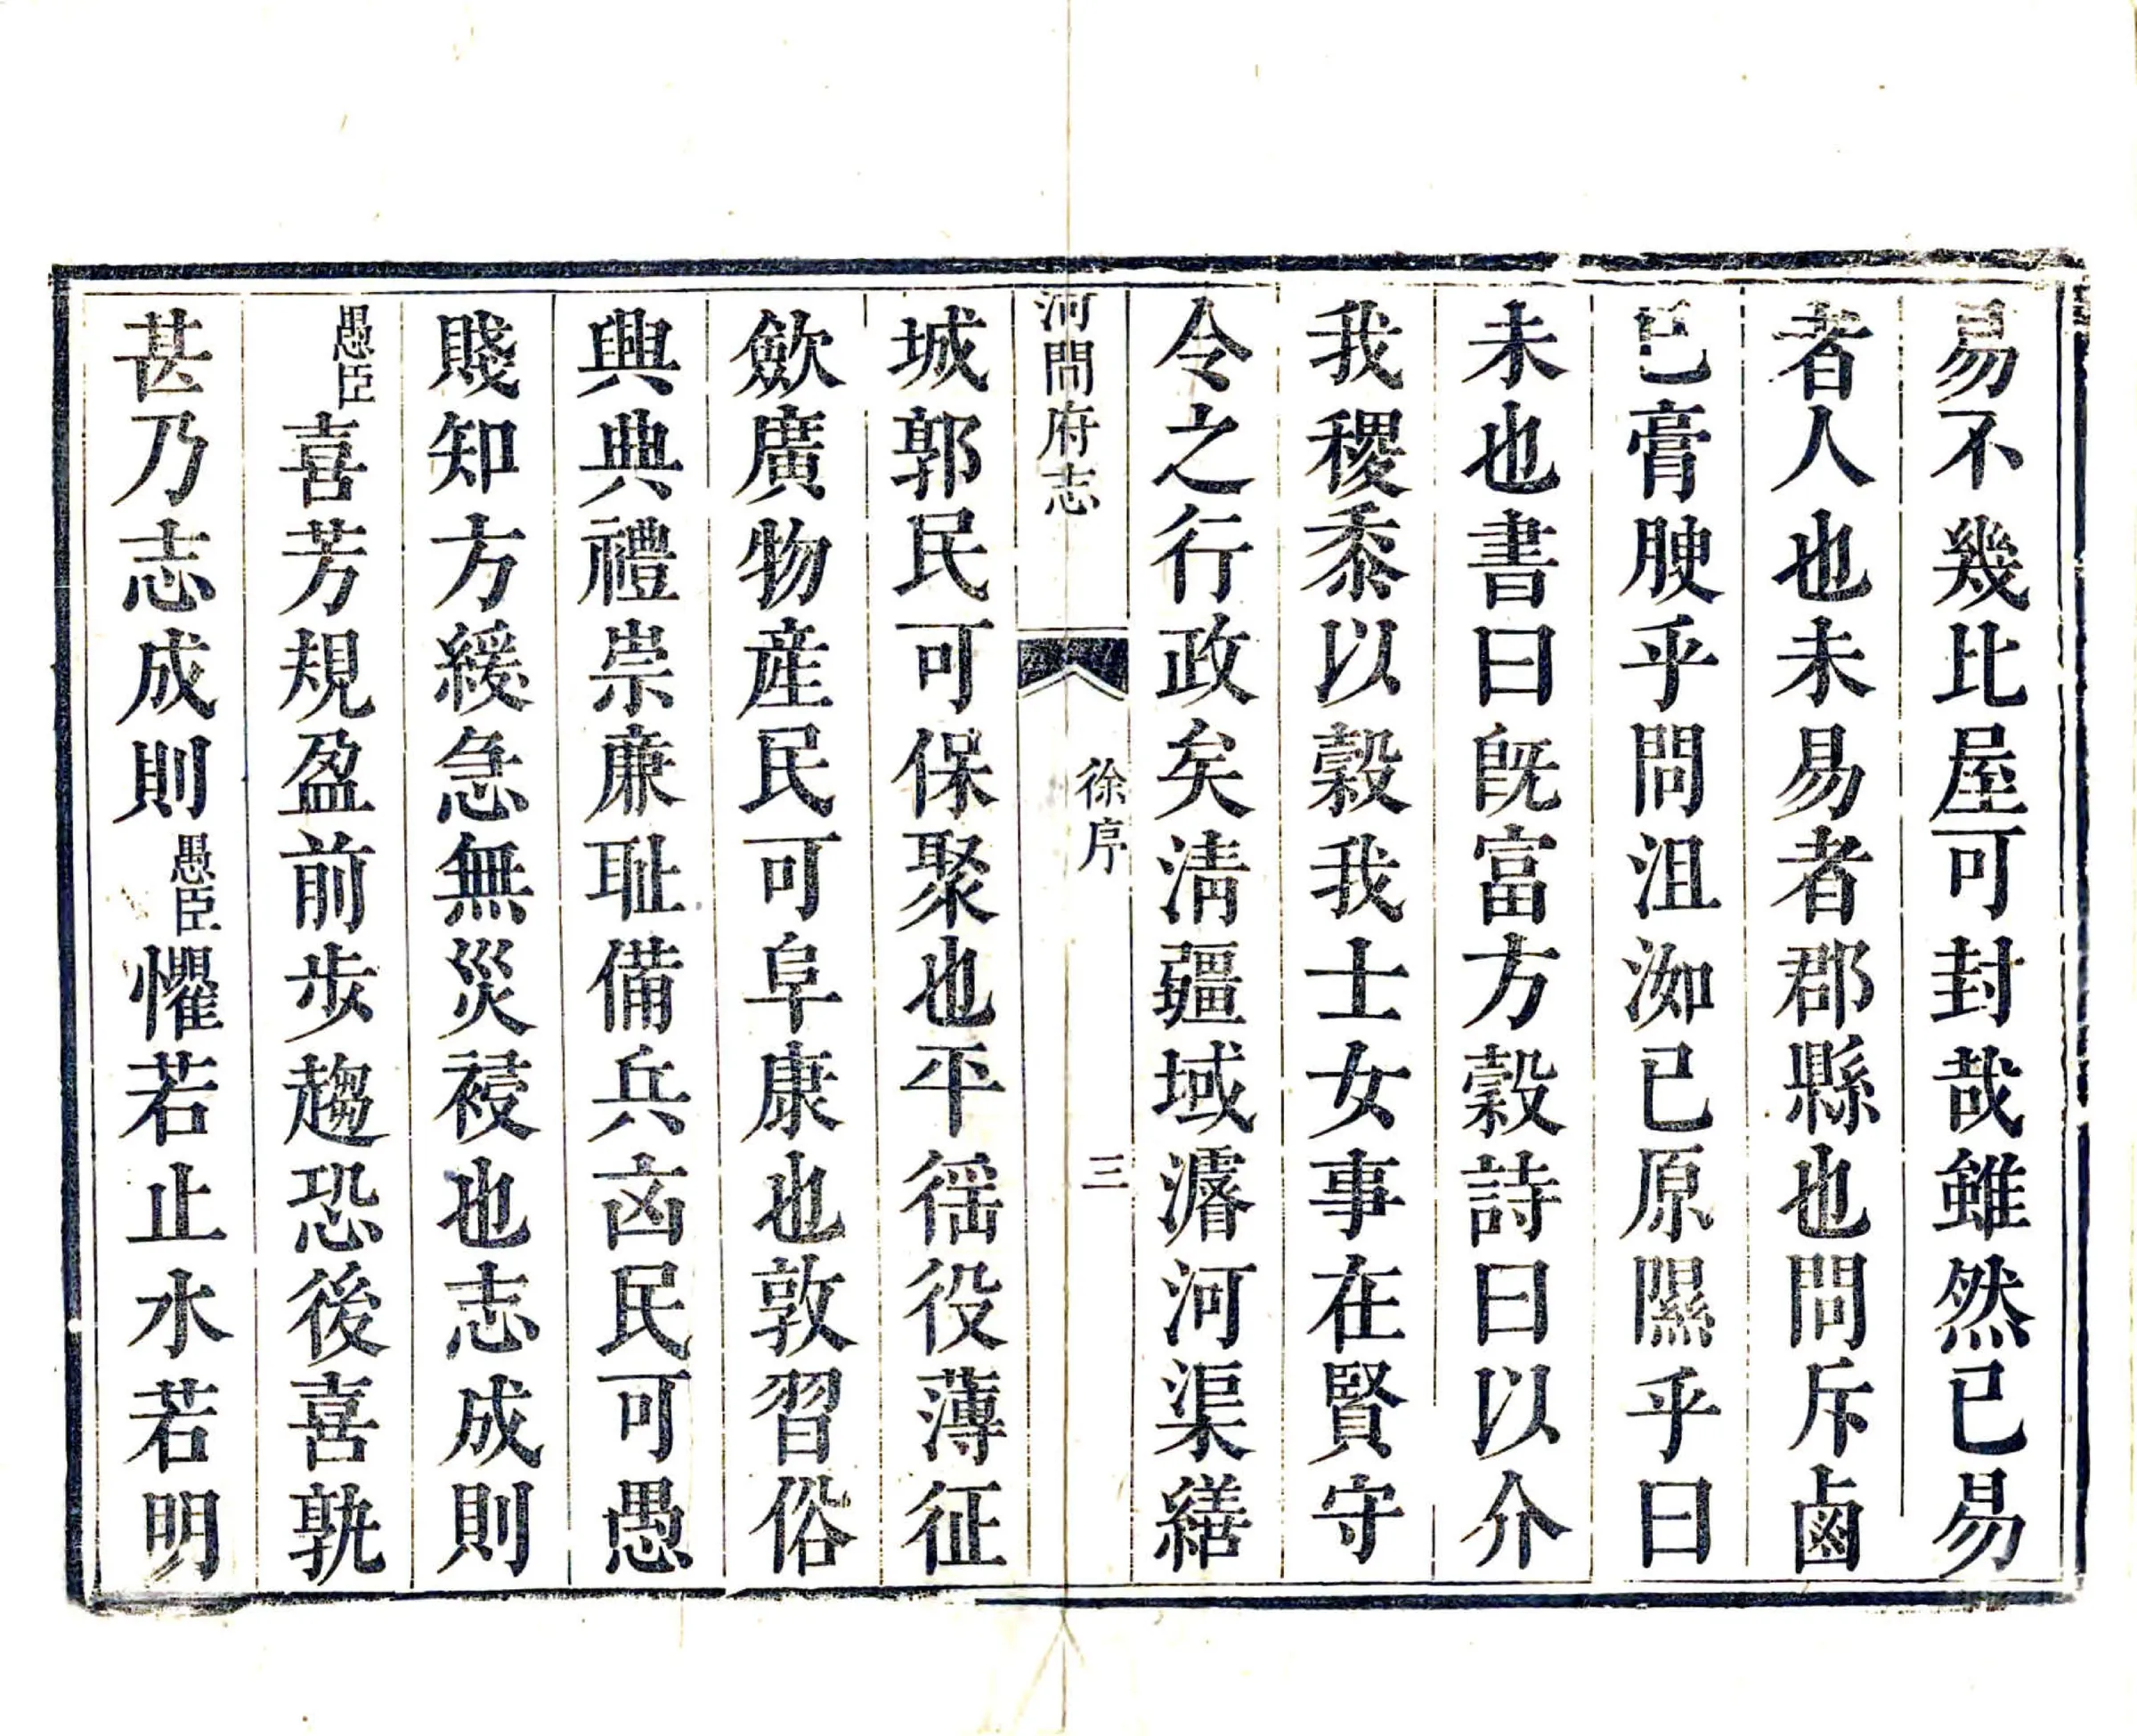 易不幾比屋可封哉雖然已易
者人也未易者郡縣也問斥鹵
已膏腴乎問沮洳已原隰乎曰
未也書曰旣富方穀詩曰以介
我稷黍以穀我士女事在賢守
令之行政矣淸疆域濬河渠繕
河間府志
徐序
三
城郭民可保聚也平徭役薄征
歛廣物産民可阜康也敦習俗
興典禮崇亷耻備兵凶民可愚
賤知方緩急無災祲也志成則
愚臣喜芳規盈前步趨恐後喜孰
甚乃志成則愚臣懼若止水若明